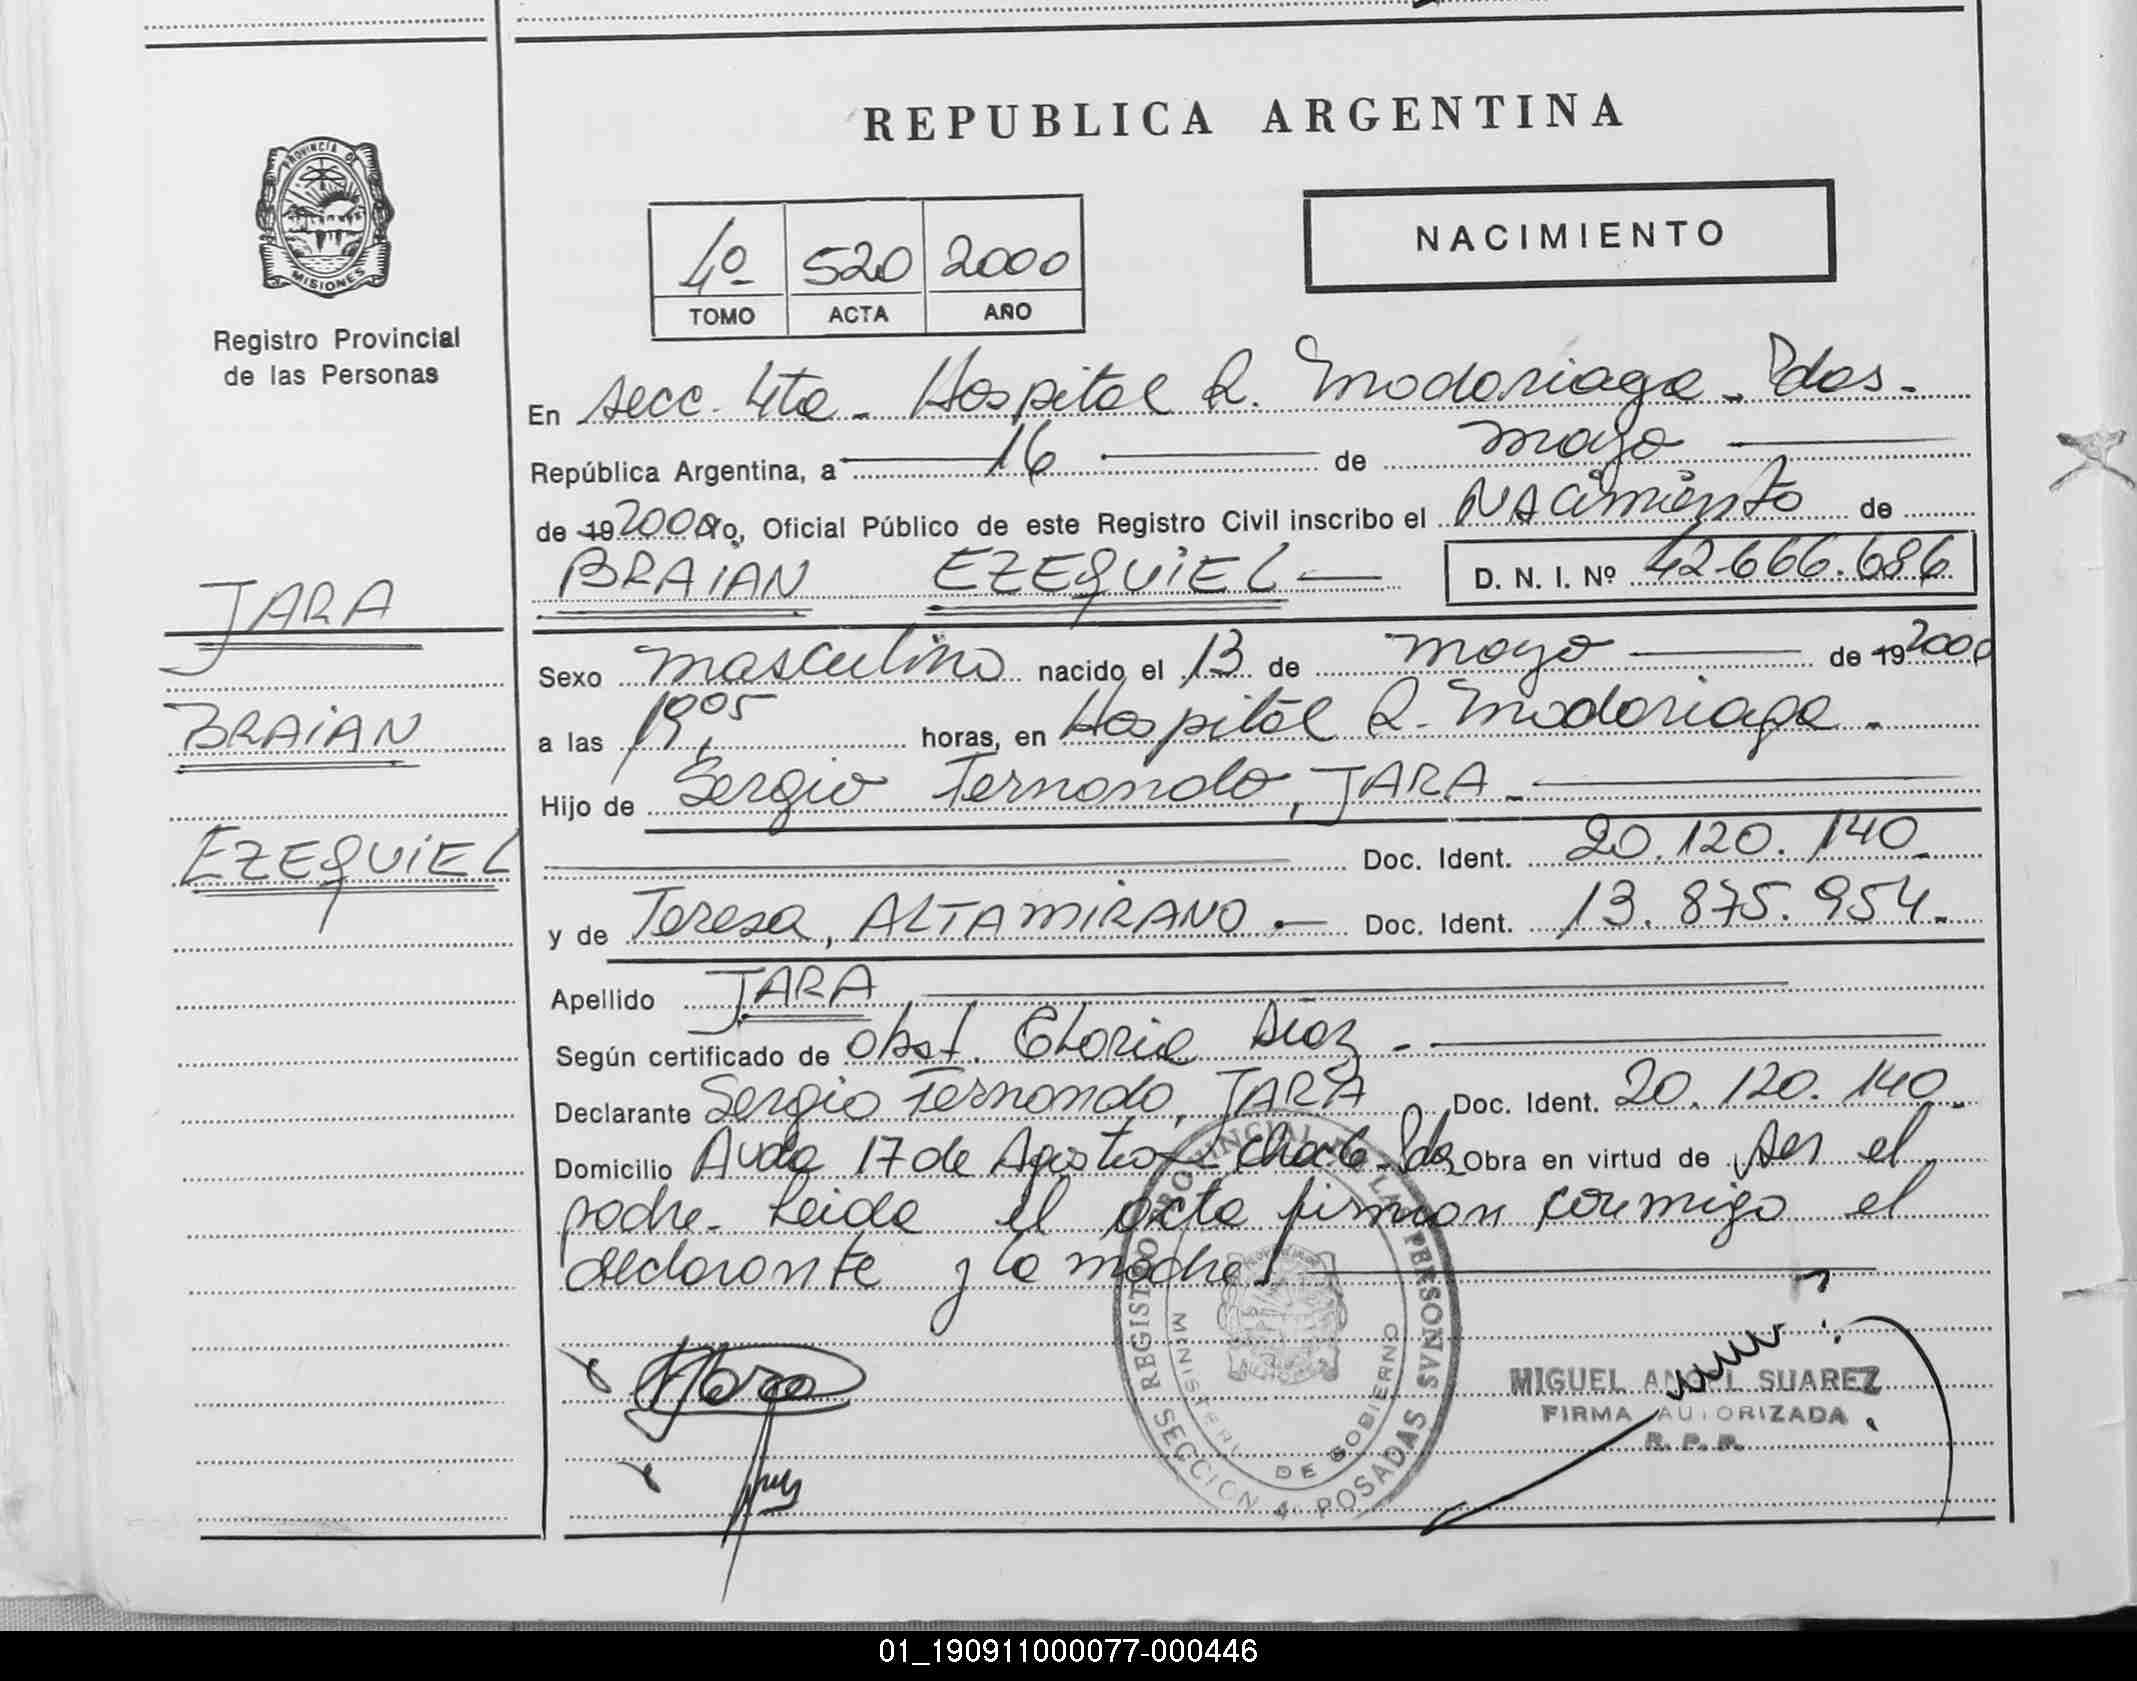 REPUBLICA ARGENTINA
PROVINCIA DE
MISIONES
Registro Provincial
de las Personas
4º 520 2000
TOMO ACTA AÑO
NACIMIENTO
En secc. 4ta. Hospital R. Madariaga. Pdas.
República Argentina, a 16 de mayo
de 19 2000 Yo, Oficial Público de este Registro Civil inscribo el NACimiento de
BRAiAN EZEQUiEL D. N. I. Nº 42.666.686
JARA
BRAiAN
EZEQUiEL
Sexo masculino nacido el 13 de mayo de 19 2000
a las 19,05 horas, en Hospital R. Madariaga.
Hijo de Sergio Fernando, JARA.
Doc. Ident. 20.120.140.
y de Teresa, ALTAMIRANO.- Doc. Ident. 13.875.954.
Apellido JARA
Según certificado de obst. Gloria Diaz.
Declarante Sergio Fernando, JARA Doc. Ident. 20.120.140.
Domicilio Avda 17 de Agosto ch. 6. Pdas Obra en virtud de ser el
padre. Leida el acta firman conmigo el
declarante y la madre.
REGISTRO PROVINCIAL DE LAS PERSONAS
MINISTERIO DE GOBIERNO
SECCION 4 POSADAS
MIGUEL ANGEL SUAREZ
FIRMA AUTORIZADA
R. P. P.
01_190911000077-000446